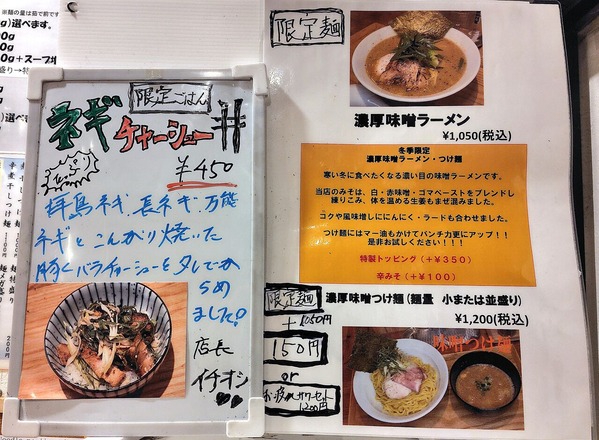 ※麺の量は茹で前です
g)選べます。
0g
0g
0g+スープ増
盛り→特
限定ごはん
ネギ
チャーシュー丼
¥450
拝島ネギ、長ネギ、万能
ネギとこんがり焼いた
豚バラチャーシューをタレでか
らめ
ました!
店長
イチオシ
限定麺
濃厚味噌ラーメン
¥1,050(税込)
冬季限定
濃厚味噌ラーメン・つけ麺
寒い冬に食べたくなる濃い目の味噌ラーメンです。
当店のみそは、白・赤味噌・ゴマペーストをブレンドし
練りこみ、体を温める生姜もまぜ混みました。
コクや風味増しににんにく・ラードも合わせました。
つけ麺にはマー油もかけてパンチ力更にアップ!!
是非お試しください!!!
特製トッピング(+¥350)
辛みそ(+¥100)
限定麺
濃厚味噌つけ麺(麺量 小または並盛り)
¥1,200(税込)
+1050円
150円
or
サワーセット
1200円
味噌つけ麺